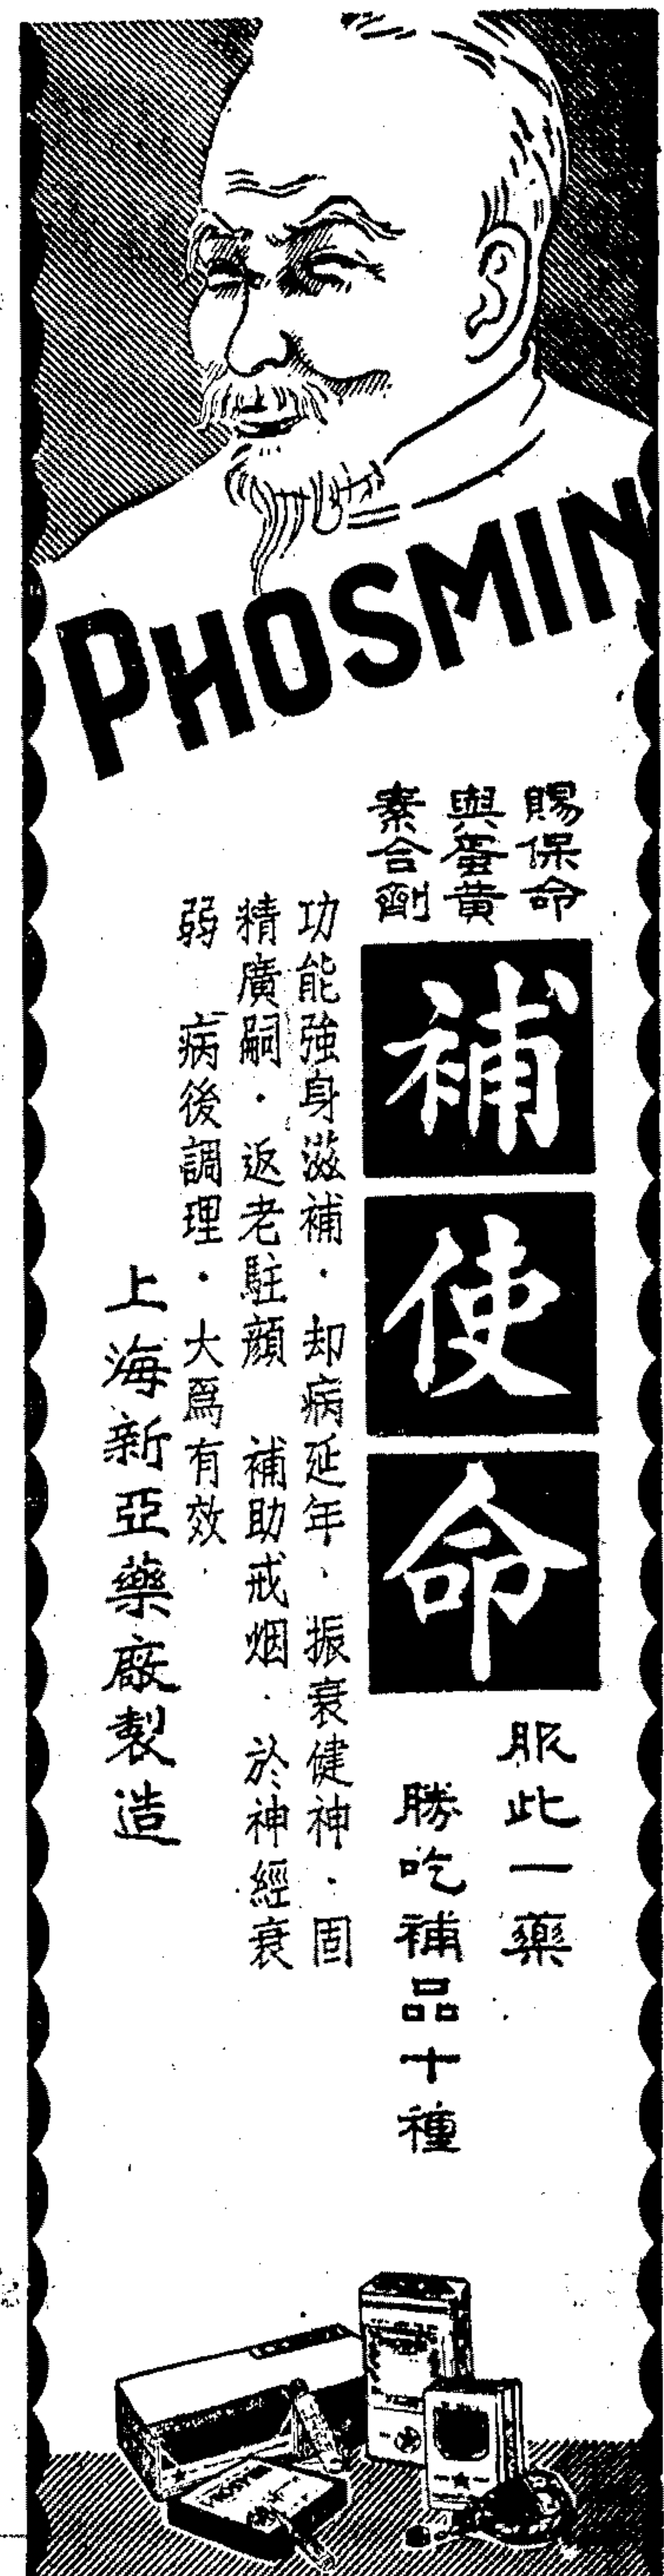 PHOSMIN
賜保命
與蛋黃
素合劑
補使命
服此一藥
勝吃補品十種
功能強身滋補．却病延年、振衰健神．固
精廣嗣．返老駐顏　補助戒烟．於神經衰
弱　病後調理．大爲有效．
上海新亞藥廠製造